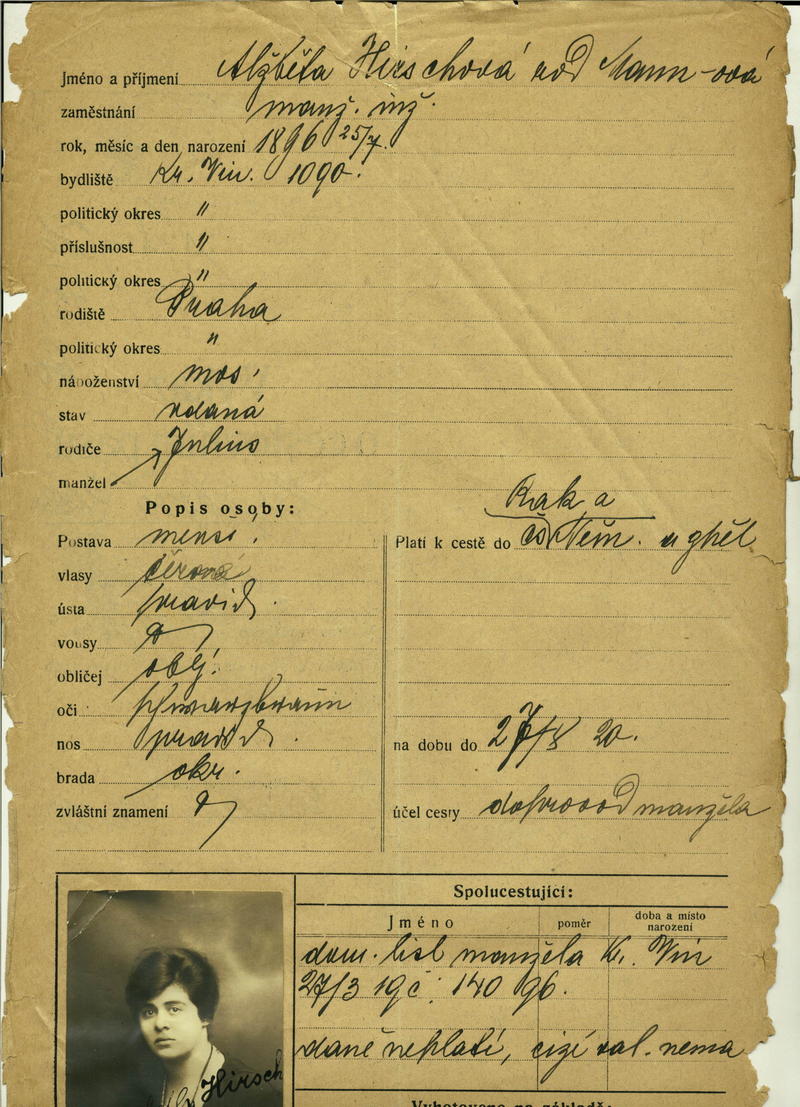 Jméno a příjmení Alžběta Hirschová rod Mann-ová
zaměstnání manž. inž.
rok, měsíc a den narození 1896 25/7.
bydliště Kr. Vin. 1090.
politický okres "
příslušnost "
politický okres "
rodiště Praha
politický okres "
náboženství mos.
stav vdaná
rodiče Julius
manžel
Popis osoby:
Postava menší.
vlasy
ústa pravid.
vousy
obličej obl.
oči schwarzbraun
nos pravid.
brada okr.
zvláštní znamení
Rak a
Platí k cestě do čs Něm. a zpět
na dobu do 20.
účel cesty doprovod manžela
Spolucestující:
Jméno poměr doba a místo narození
dom. list manžela Kr. Vin
27/3 19 č. 140 96.
daně neplatí, cizí val. nemá
Hirsch
Vyhotoveno na základě: